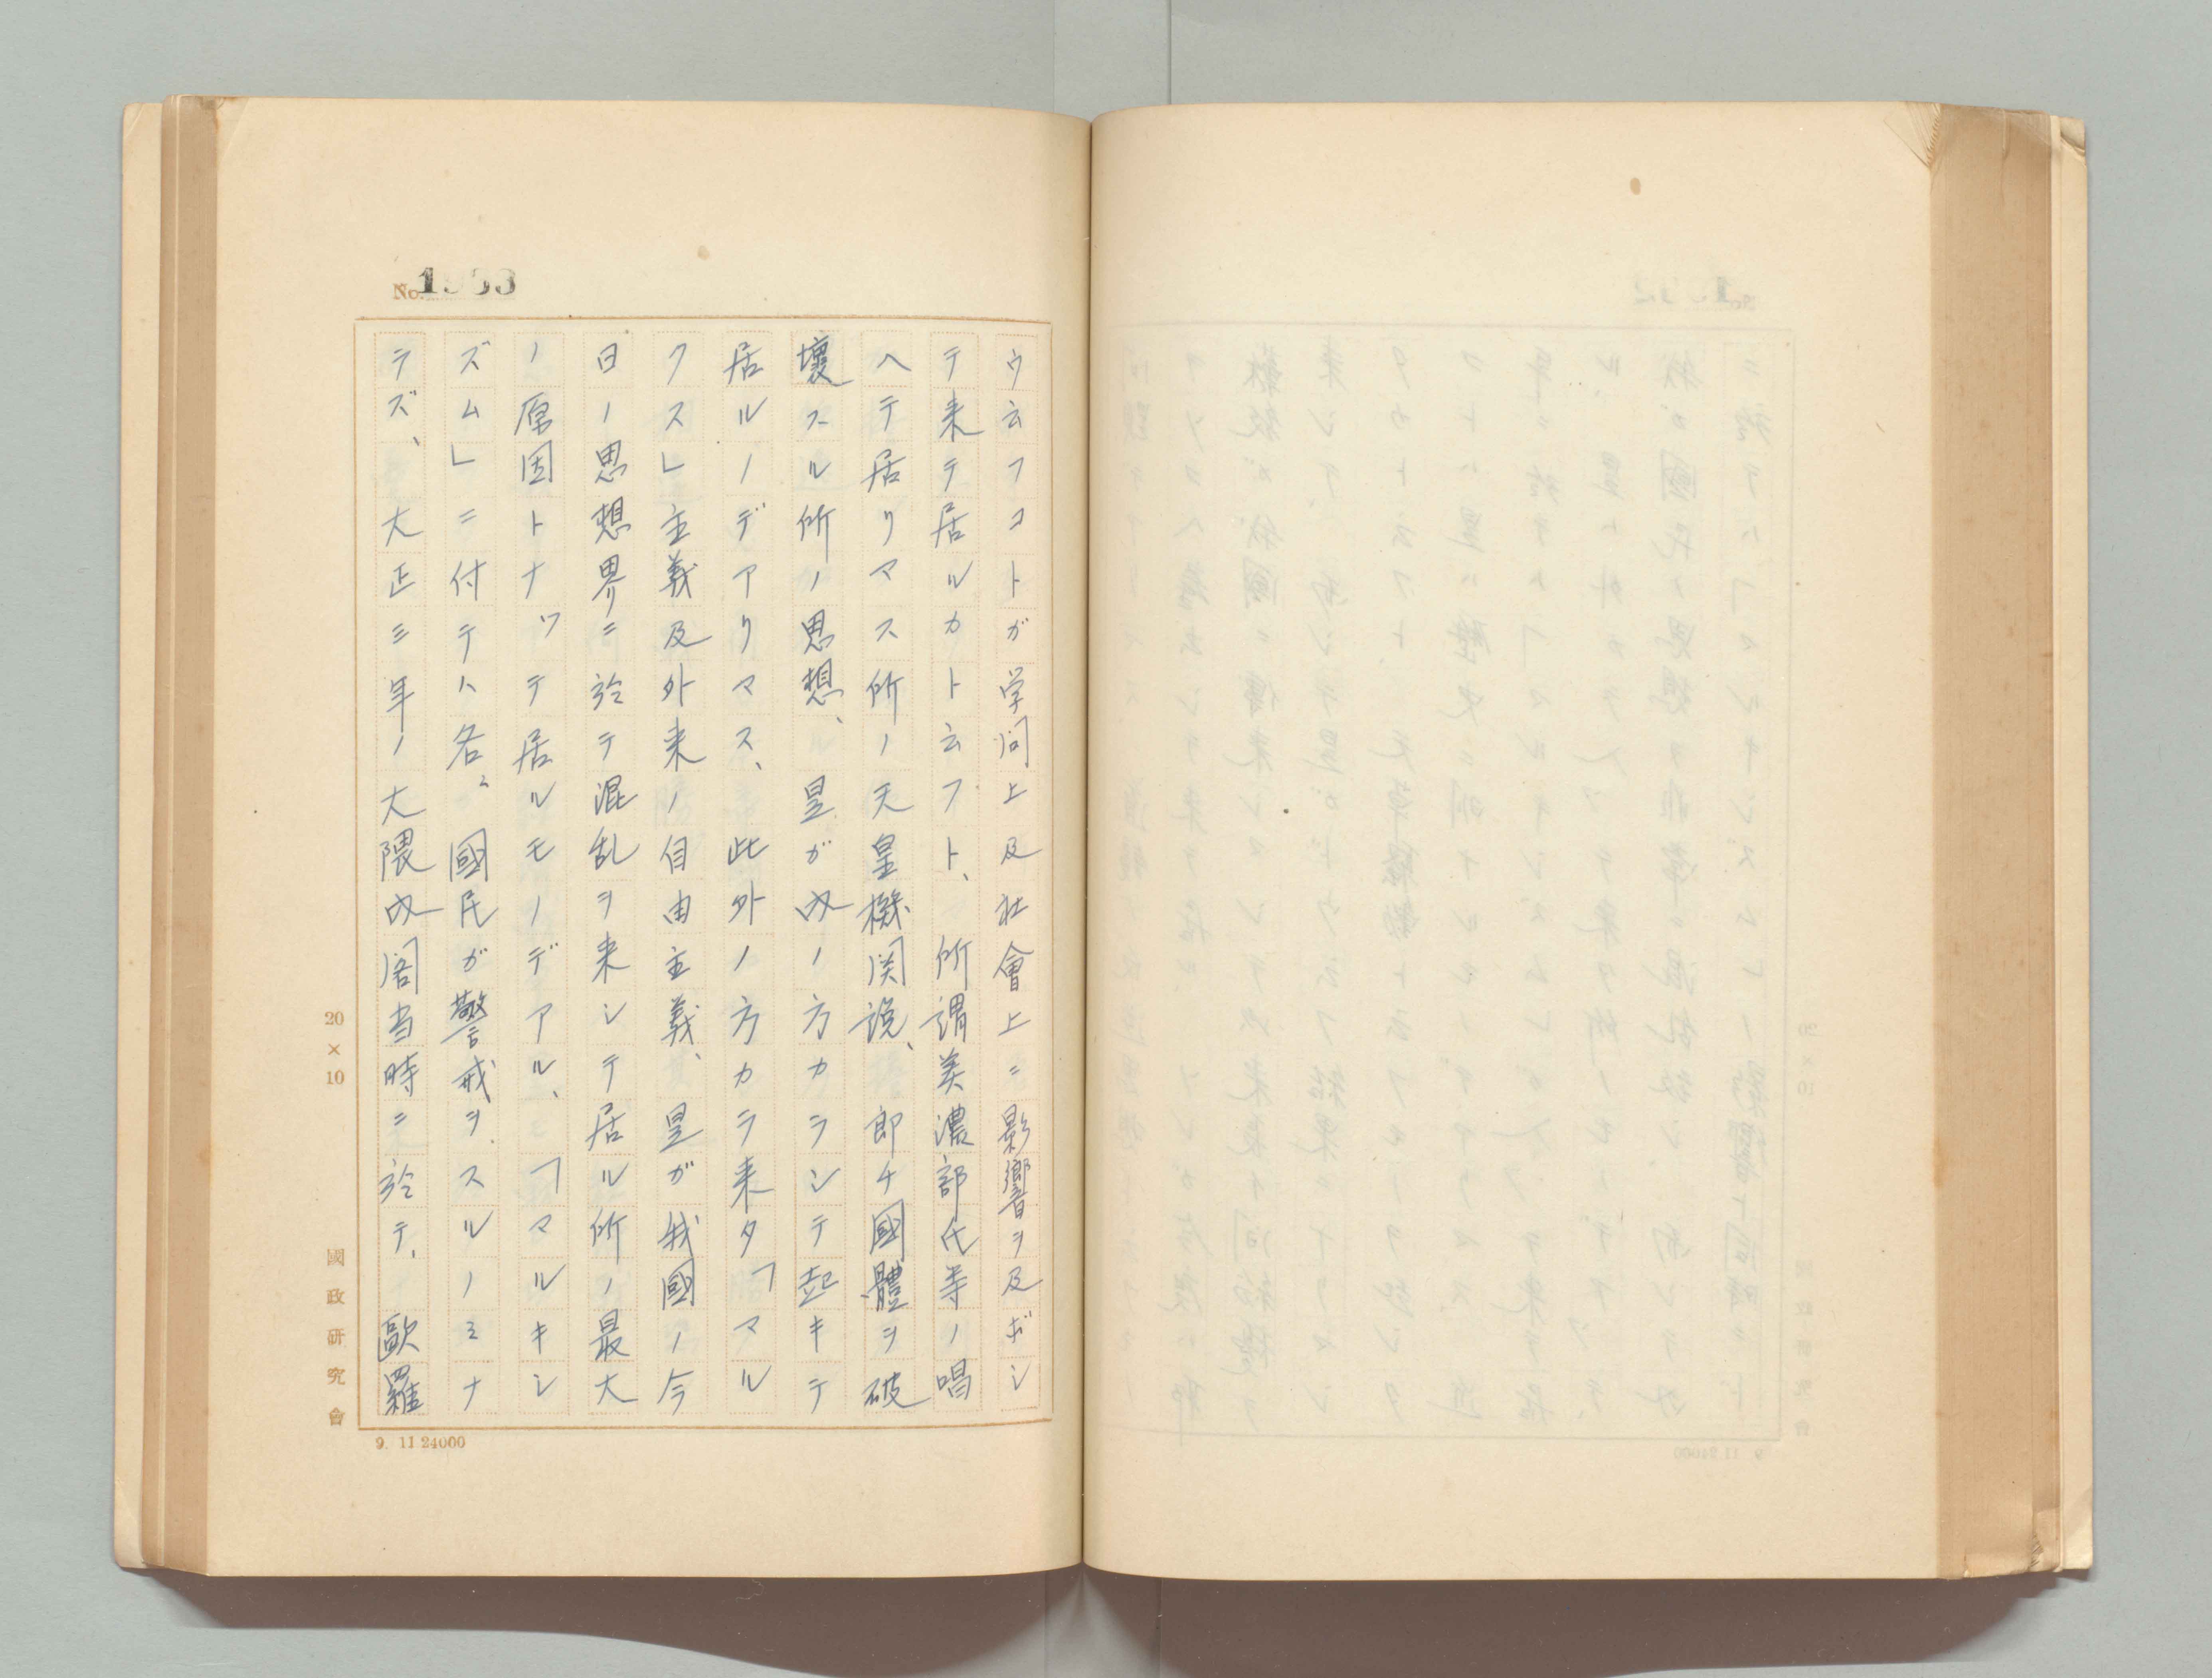 No. 1933
ウ云フコトガ学问上及社會上ニ影響ヲ及ボシ
テ来テ居ルカト云フト、所謂美濃部氏等ノ唱
ヘテ居リマス所ノ天皇機関説、即チ國體ヲ破
壊スル所ノ思想、是ガ内ノ方カラシテ起キテ
居ルノデアリマス、此外ノ方カラ来タ「マル
クス」主義及外来ノ自由主義、是ガ我國ノ今
日ノ思想界ニ於テ混乱ヲ来シテ居ル所ノ最大
ノ原因トナツテ居ルモノデアル、「マルキシ
ズム」ニ付テハ各々國民ガ警戒ヲスルノミナ
ラズ、大正三年ノ大隈内閣当時ニ於テ、歐羅
20×10
國政研究會
9. 11 24000